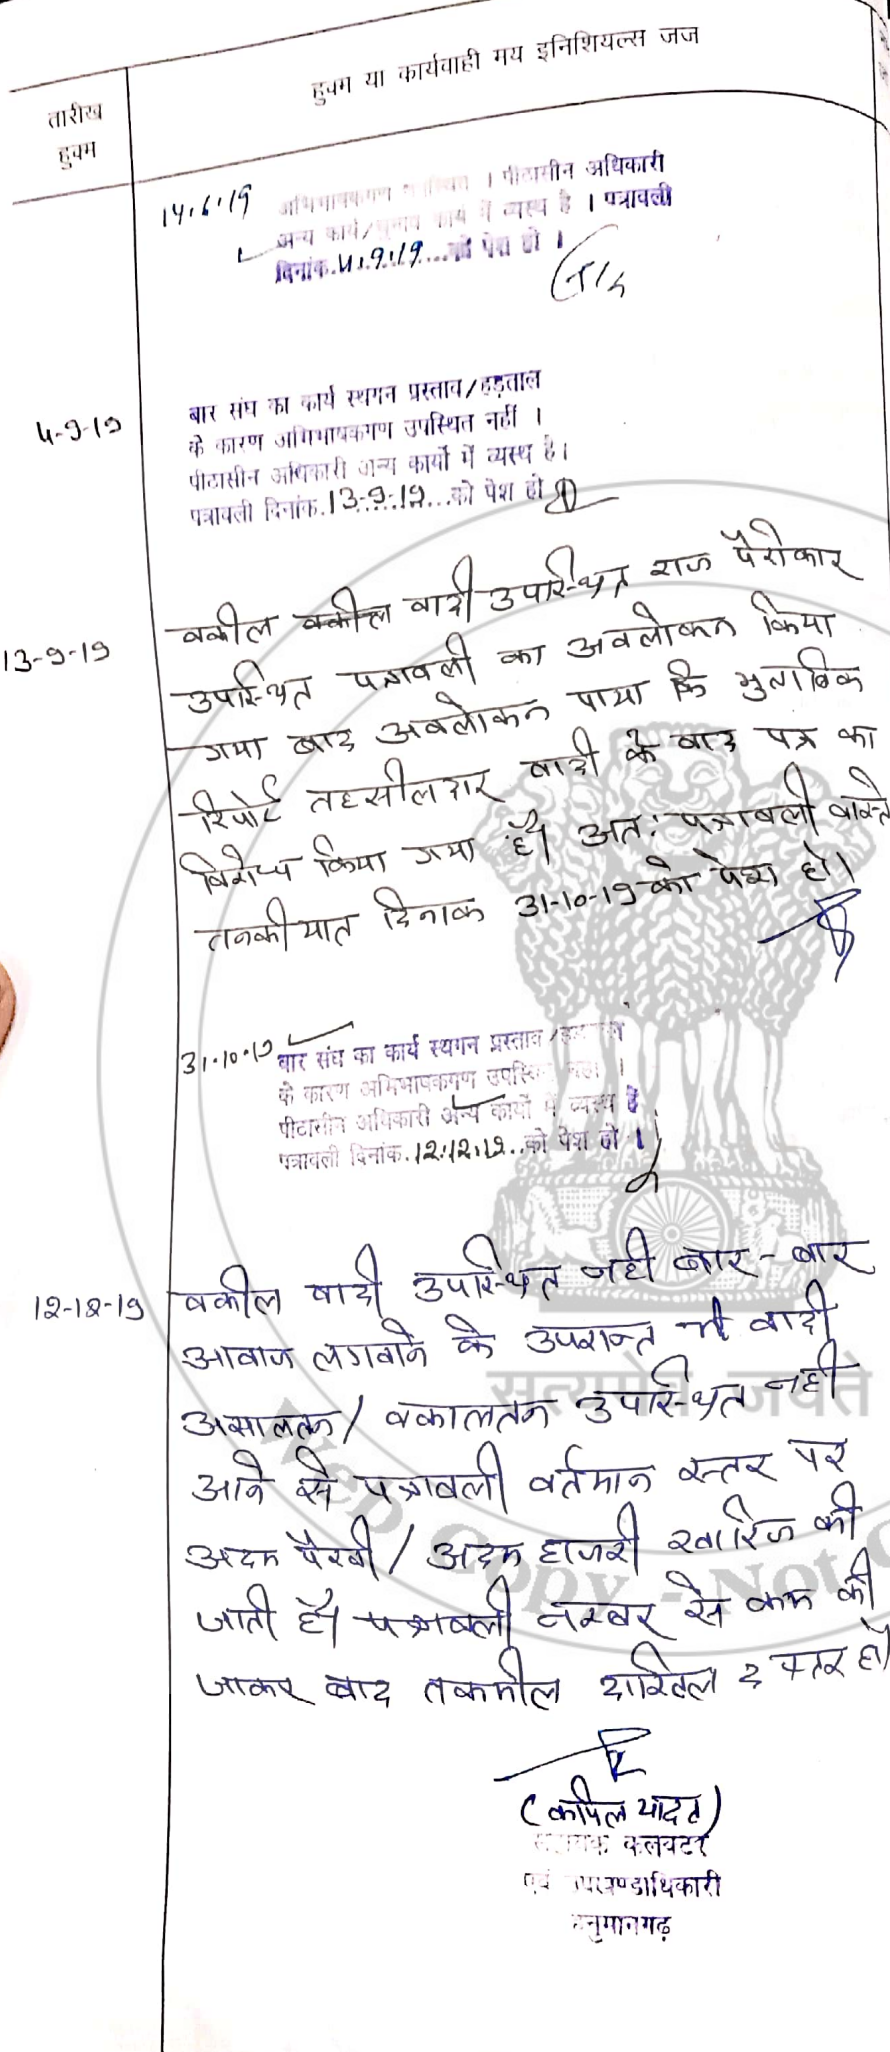 हुक्म या कार्यवाही मय इनिशियल्स जज
तारीख
हुक्म
14.6.19
अभिभाषकगण । पीठासीन अधिकारी
अन्य कार्य/चुनाव कार्य में व्यस्थ है । पत्रावली
दिनांक.4.9.19....को पेश हो ।
4-9-19
बार संघ का कार्य स्थगन प्रस्ताव/हड़ताल
के कारण अभिभाषकगण उपस्थित नहीं ।
पीठासीन अधिकारी अन्य कार्यो में व्यस्थ है।
पत्रावली दिनांक.13-9-19...को पेश हो
13-9-19
वकील वकील वादी उपस्थित राज पैरोकार
उपस्थित पत्रावली का अवलोकन किया
गया बाद अवलोकन पाया कि मुताबिक
रिपोर्ट तहसीलदार वादी के वाद पत्र का
विरोध किया गया है। अतः पत्रावली वास्ते
तनकीयात दिनाक 31-10-19 को पेश हो।
31.10.19
बार संघ का कार्य स्थगन प्रस्ताव /
के कारण अभिभाषकगण
पीठासीन अधिकारी अन्य कार्यो में व्यस्थ है
पत्रावली दिनांक.12.12.19..को पेश हो ।
12-12-19
वकील वादी उपस्थित नही बार-बार
आवाज लगवाने के उपरान्त भी वादी
असालतन/ वकालतन उपस्थित नही
आने से पत्रावली वर्तमान स्तर पर
अदम पैरवी/ अदम हाजरी खारिज की
जाती है। पत्रावली नम्बर से कम की
जाकर बाद तकमील दाखिल दफ्तर हो
(कपिल यादव)
सहायक कलक्टर
एवं उपखण्डाधिकारी
हनुमानगढ़
सत्यमेव जयते
Web Copy - Not